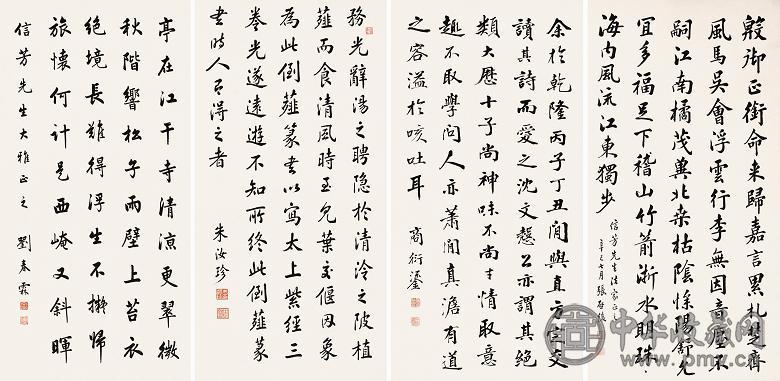 殷御正衔命来归嘉言累札楚齊
風马吴會浮雲行李無因音塵不
嗣江南橘茂冀北桑枯陰慘陽舒允
宜多福足下稽山竹箭浙水明珠
海内風流江東獨步
信芳先生法家正之
辛巳七月張啓後
余於乾隆丙子丁丑間與直方定交
讀其詩而愛之沈文慤公亦謂其絕
類大厯十子尚神味不尚才情取意
趣不取學問人亦蕭閒真澹有道
之容溢於咳吐耳
商衍鎏
務光辭湯之聘隐於清泠之陂植
薤而食清風時至見葉交偃因象
為此倒薤篆書以寫太上紫經三
卷光遂遠遊不知所終此倒薤篆
書時人召得之者
朱汝珍
亭在江干寺清涼更翠微
秋階響松子雨壁上苔衣
絕境長難得浮生不擬歸
旅懷何計是西崦又斜暉
信芳先生大雅正之
劉春霖
中华收藏网
www.pmcy.com